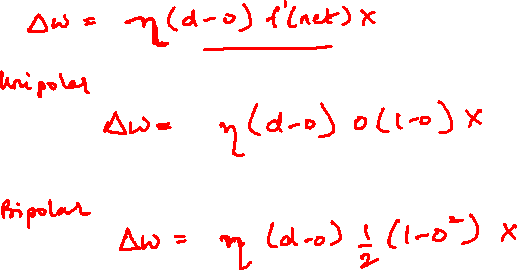 Δw = η(d-o) f'(net) x
Unipolar
Δw = η(d-o) o(1-o) x
Bipolar
Δw = η (d-o) 1/2 (1-o²) x